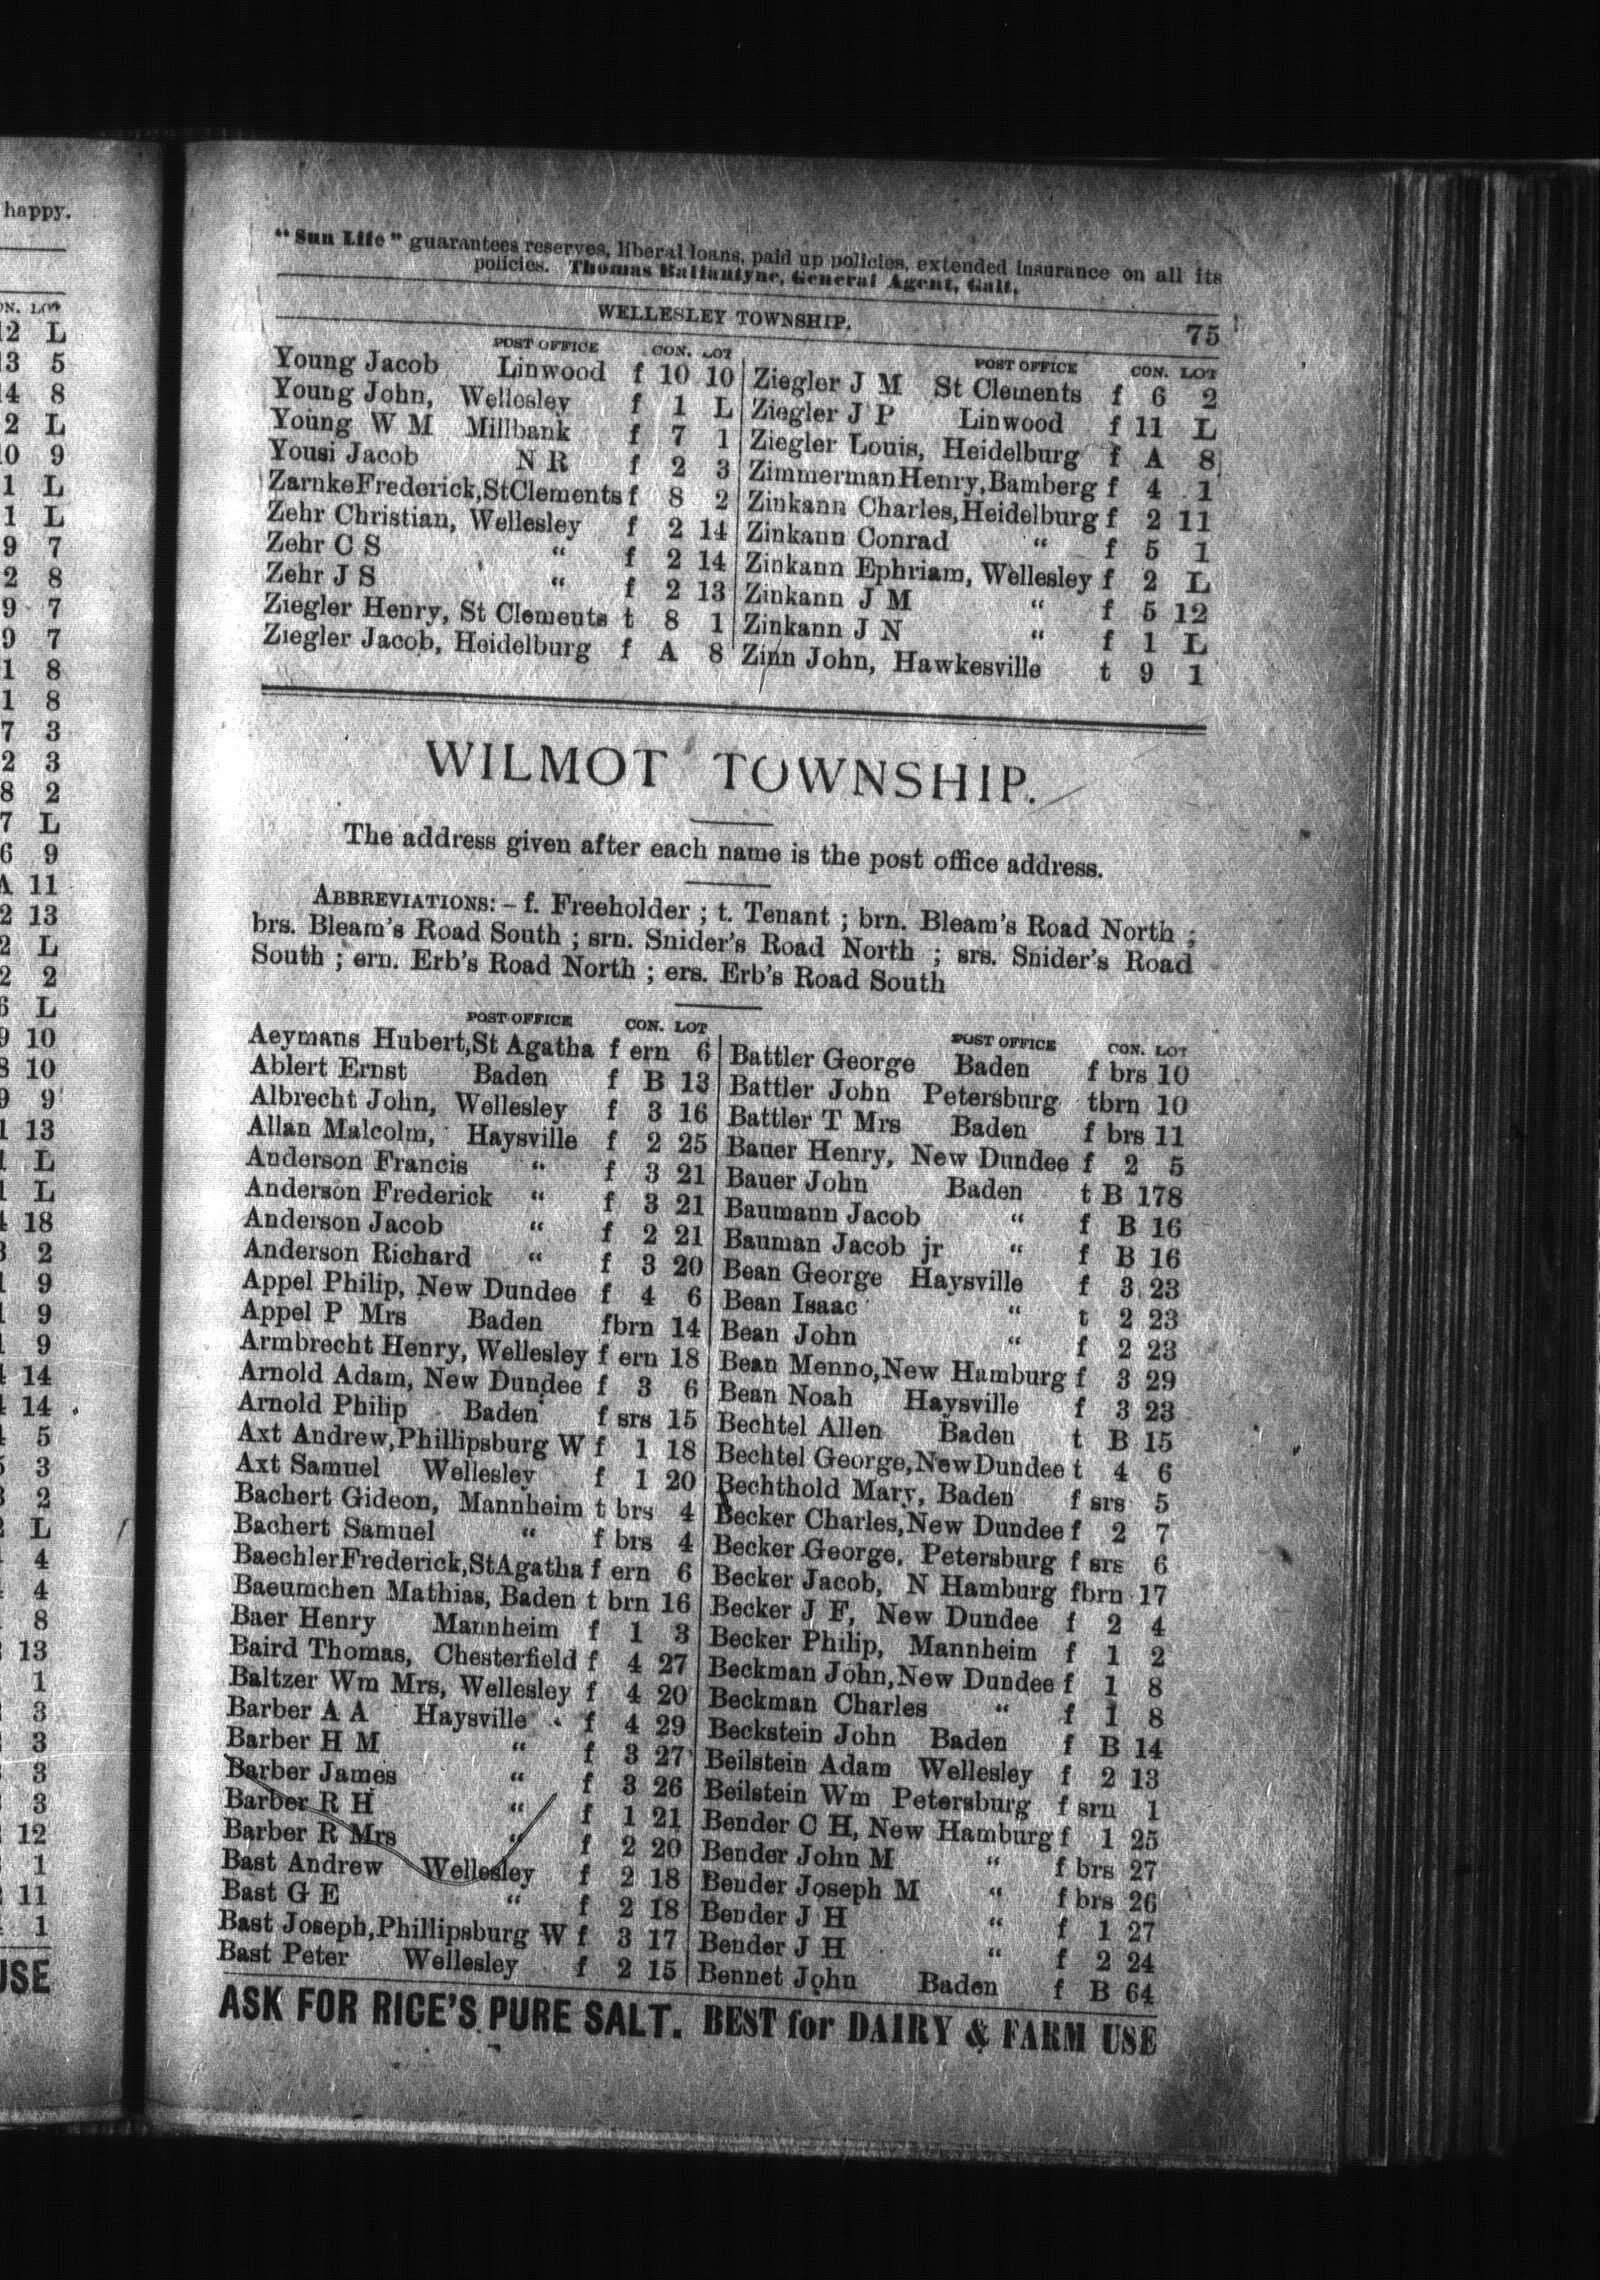 happy.
"Sun Life" guarantees reserves, liberal loans, paid up policies, extended insurance on all its
policies. Thomas Ballantyne, General Agent, Galt.
WELLESLEY TOWNSHIP. 75
POST OFFICE CON. LOT
Young Jacob Linwood f 10 10
Young John, Wellesley f 1 L
Young W M Millbank f 7 1
Yousi Jacob N R f 2 3
Zarnke Frederick, St Clements f 8 2
Zehr Christian, Wellesley f 2 14
Zehr C S " f 2 14
Zehr J S " f 2 13
Ziegler Henry, St Clements t 8 1
Ziegler Jacob, Heidelburg f A 8
POST OFFICE CON. LOT
Ziegler J M St Clements f 6 2
Ziegler J P Linwood f 11 L
Ziegler Louis, Heidelburg f A 8
Zimmerman Henry, Bamberg f 4 1
Zinkann Charles, Heidelburg f 2 11
Zinkann Conrad " f 5 1
Zinkann Ephriam, Wellesley f 2 L
Zinkann J M " f 5 12
Zinkann J N " f 1 L
Zinn John, Hawkesville t 9 1
WILMOT TOWNSHIP.
The address given after each name is the post office address.
ABBREVIATIONS:- f. Freeholder ; t. Tenant ; brn. Bleam's Road North ;
brs. Bleam's Road South ; srn. Snider's Road North ; srs. Snider's Road
South ; ern. Erb's Road North ; ers. Erb's Road South
POST OFFICE CON. LOT
Aeymans Hubert, St Agatha f ern 6
Ablert Ernst Baden f B 13
Albrecht John, Wellesley f 3 16
Allan Malcolm, Haysville f 2 25
Anderson Francis " f 3 21
Anderson Frederick " f 3 21
Anderson Jacob " f 2 21
Anderson Richard " f 3 20
Appel Philip, New Dundee f 4 6
Appel P Mrs Baden fbrn 14
Armbrecht Henry, Wellesley f ern 18
Arnold Adam, New Dundee f 3 6
Arnold Philip Baden f srs 15
Axt Andrew, Phillipsburg W f 1 18
Axt Samuel Wellesley f 1 20
Bachert Gideon, Mannheim t brs 4
Bachert Samuel " f brs 4
Baechler Frederick, St Agatha f ern 6
Baeumchen Mathias, Baden t brn 16
Baer Henry Mannheim f 1 3
Baird Thomas, Chesterfield f 4 27
Baltzer Wm Mrs, Wellesley f 4 20
Barber A A Haysville f 4 29
Barber H M " f 3 27
Barber James " f 3 26
Barber R H " f 1 21
Barber R Mrs " f 2 20
Bast Andrew Wellesley f 2 18
Bast G E " f 2 18
Bast Joseph, Phillipsburg W f 3 17
Bast Peter Wellesley f 2 15
POST OFFICE CON. LOT
Battler George Baden f brs 10
Battler John Petersburg tbrn 10
Battler T Mrs Baden f brs 11
Bauer Henry, New Dundee f 2 5
Bauer John Baden t B 178
Baumann Jacob " f B 16
Bauman Jacob jr " f B 16
Bean George Haysville f 3 23
Bean Isaac " t 2 23
Bean John " f 2 23
Bean Menno, New Hamburg f 3 29
Bean Noah Haysville f 3 23
Bechtel Allen Baden t B 15
Bechtel George, New Dundee t 4 6
Bechthold Mary, Baden f srs 5
Becker Charles, New Dundee f 2 7
Becker George, Petersburg f srs 6
Becker Jacob, N Hamburg fbrn 17
Becker J F, New Dundee f 2 4
Becker Philip, Mannheim f 1 2
Beckman John, New Dundee f 1 8
Beckman Charles " f 1 8
Beckstein John Baden f B 14
Beilstein Adam Wellesley f 2 13
Beilstein Wm Petersburg f srn 1
Bender C H, New Hamburg f 1 25
Bender John M " f brs 27
Bender Joseph M " f brs 26
Bender J H " f 1 27
Bender J H " f 2 24
Bennet John Baden f B 64
ASK FOR RICE'S PURE SALT. BEST for DAIRY & FARM USE